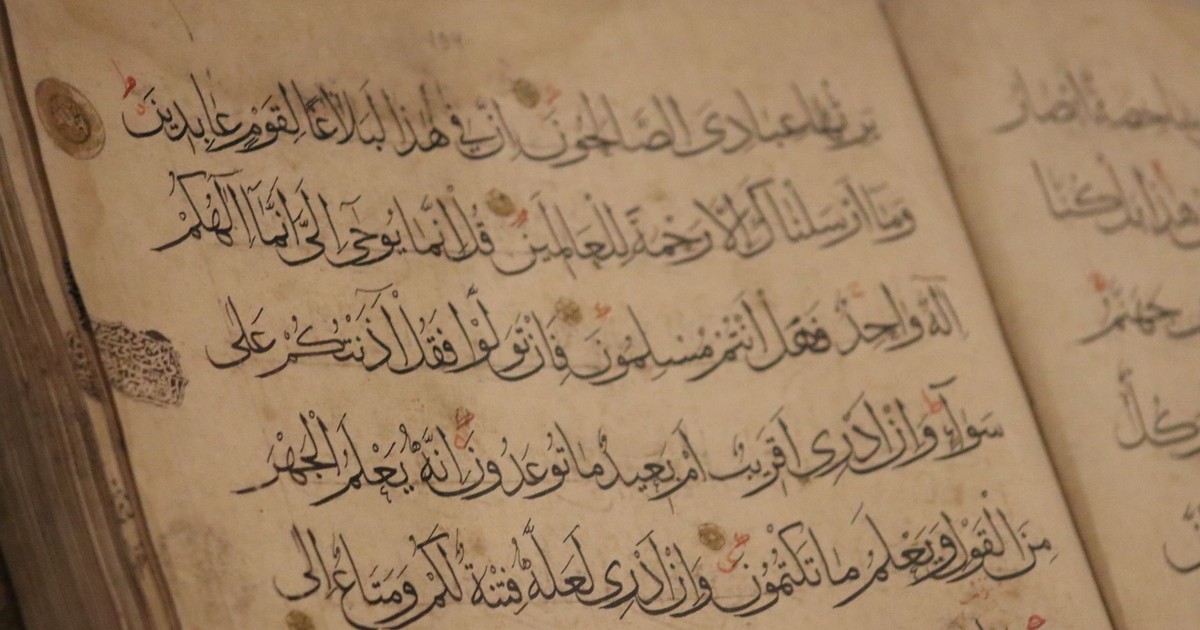 شاخصة ابصار
هذا بل كنا
جهنم
وكل
يَرِثُهَا عِبَادِىَ الصَّالِحُونَ اِنَّ فِى هٰذَا لَبَلَاغًا لِقَوْمٍ عَابِدِينَ
وَمَا اَرْسَلْنَاكَ اِلَّا رَحْمَةً لِلْعَالَمِينَ قُلْ اِنَّمَا يُوحٰىٓ اِلَىَّ اَنَّمَآ اِلٰهُكُمْ
اِلٰهٌ وَاحِدٌ فَهَلْ اَنْتُمْ مُسْلِمُونَ فَاِنْ تَوَلَّوْا فَقُلْ اٰذَنْتُكُمْ عَلٰى
سَوَآءٍ وَاِنْ اَدْرِى اَقَرِيبٌ اَمْ بَعِيدٌ مَا تُوعَدُونَ اِنَّهُ يَعْلَمُ الْجَهْرَ
مِنَ الْقَوْلِ وَيَعْلَمُ مَا تَكْتُمُونَ وَاِنْ اَدْرِى لَعَلَّهُ فِتْنَةٌ لَكُمْ وَمَتَاعٌ اِلٰى